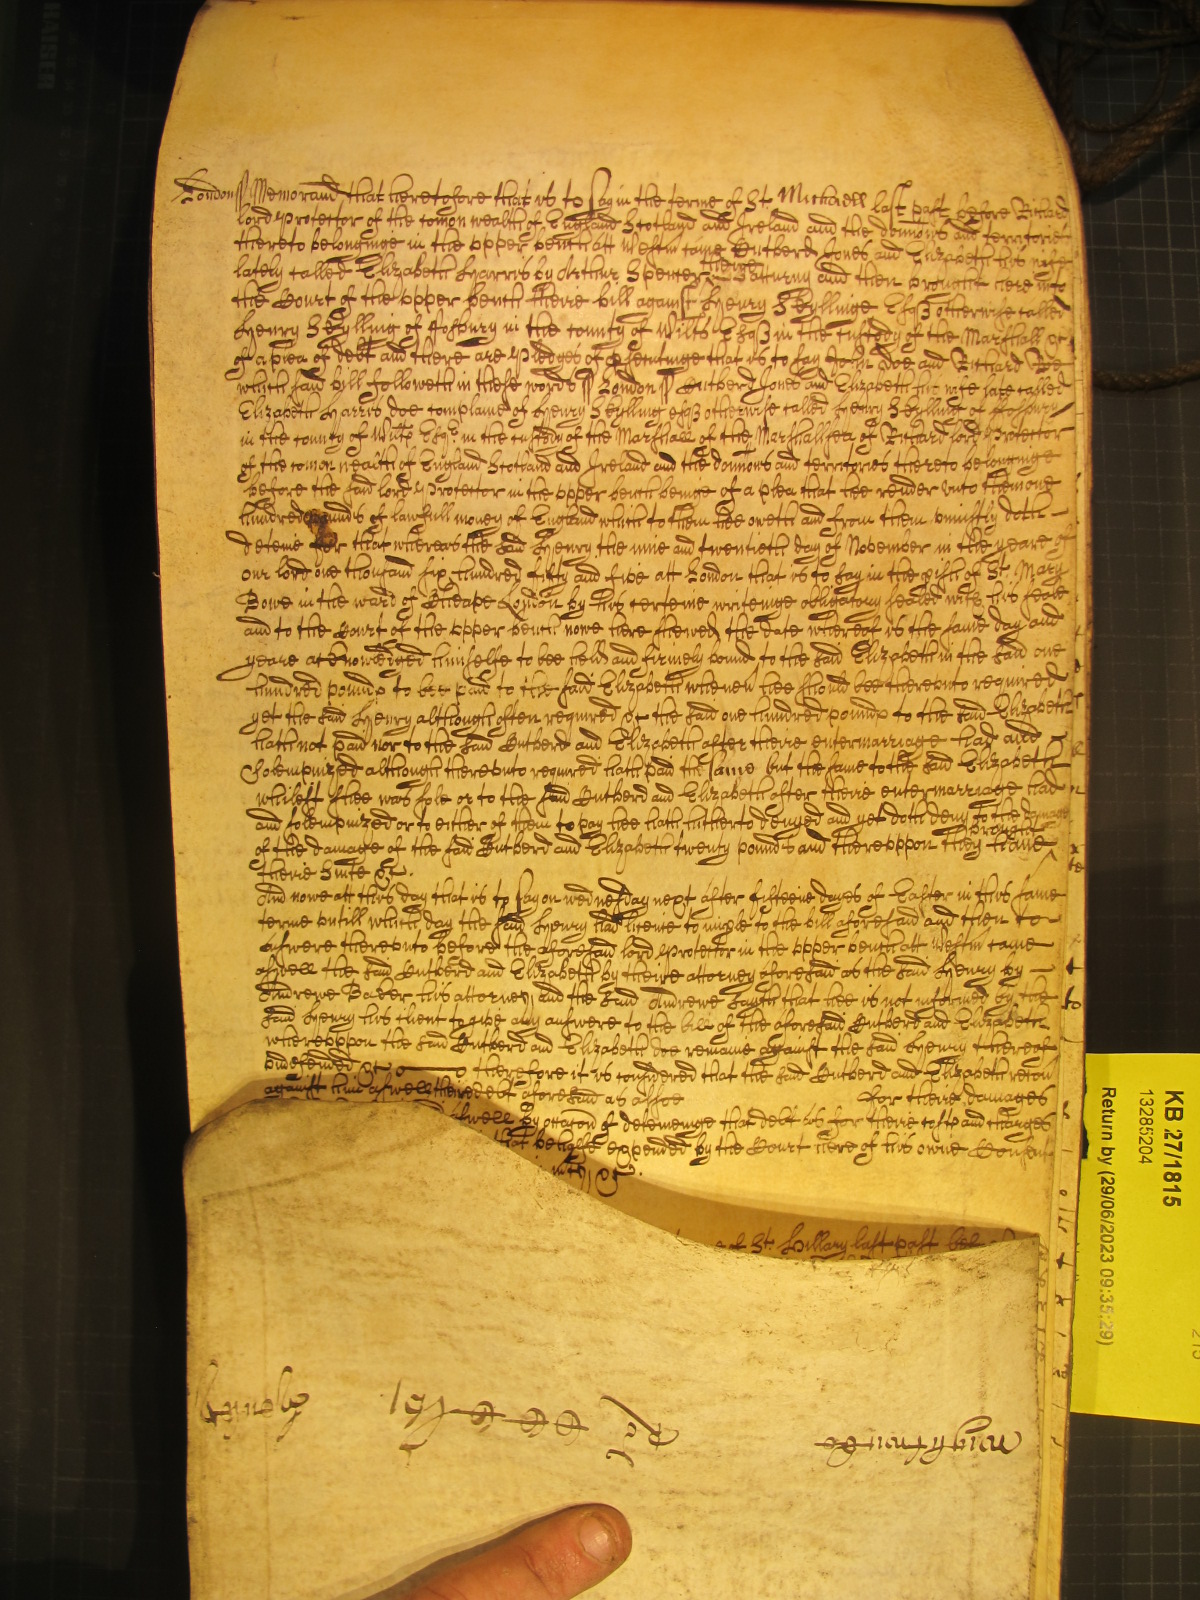 London ss Memorand that heretofore that is to say in the terme of St. Michaell last past before Richard
lord Protector of the comon wealth of England Scotland and Ireland and the dominons and territories
thereto belonginge in the upper bench att Westm came Cutberd Jones and Elizabeth his wife
lately called Elizabeth Harris by Arthur Spencer theire Atturny and then brought here into
the Court of the upper bench theire bill against Henry Skyllinge Esqr otherwise called
Henry Skylling of in the county of Wilts Esqr in the custody of the Marshall &c
of a plea of debt and there are Pledges of prosecutinge that is to say John Doe and Richard Roe
which said bill followeth in these words ss London ss Cutberd Jones and Elizabeth his wife late called
Elizabeth Harris doe complaine of Henry Skylling esqr otherwise called Henry Skylling of
in the county of Wilts Esqr in the custody of the Marshall of the Marshallsea of Richard lord Protector
of the comon wealth of England Scotland and Ireland and the dominons and territories thereto belonginge
before the said lord Protector in the upper bench beinge of a plea that hee render unto them one
hundred pounds of lawfull money of England which to them hee oweth and from them uniustly doth
deteine for that whereas the said Henry the nine and twentieth day of November in the yeare of
our lord one thousand six hundred fifty and five att London that is to say in the pish of St. Mary
Bowe in the ward of Cheape London by his certeine writeinge obligatory sealed with his seale
and to the Court of the upper bench nowe here shewed the date whereof is the same day and
yeare acknowledged himselfe to bee held and firmely bound to the said Elizabeth in the said one
hundred pounds to bee paid to the said Elizabeth when hee should bee thereunto required
yet the said Henry although often required &c the said one hundred pounds to the said Elizabeth
hath not paid nor to the said Cutberd and Elizabeth after theire entermarriage had and
Solempnized although thereunto required hath paid the same but the same to the said Elizabeth
whilest shee was sole or to the said Cutberd and Elizabeth after theire entermarriage had
and solempnized or to either of them to pay hee hath hitherto denyed and yet doth deny to the damage
of the damage of the said Cutberd and Elizabeth twenty pounds and thereuppon they brought
theire Suite &c.
And nowe att this day that is to say on wednesday next after fifteene dayes of Easter in this same
terme untill which day the said Henry had licence to imple to the bill aforesaid and then to
answere thereunto before the aforesaid lord Protector in the upper bench att Westm came
aswell the said Cutberd and Elizabeth by theire attorney aforesaid as the said Henry by
Andrewe Baker his attorney and the said Andrewe sayth that hee is not informed by the
said Henry his client to give any answere to the bill of the aforesaid Cutberd and Elizabeth
whereuppon the said Cutberd and Elizabeth doe remaine against the said Henry thereof
undefended &c therefore it is considered that the said Cutberd and Elizabeth recou
against him aswell theire debt aforesaid as alsoe for theire damages
aswell by occasion of deteineinge that debt as for theire costs and charges
that behalfe expended by the Court here of his owne
in mcy &c.
of St. Hillary last past
KB 27/1815
13285204
Return by (29/06/2023 09:35:29)